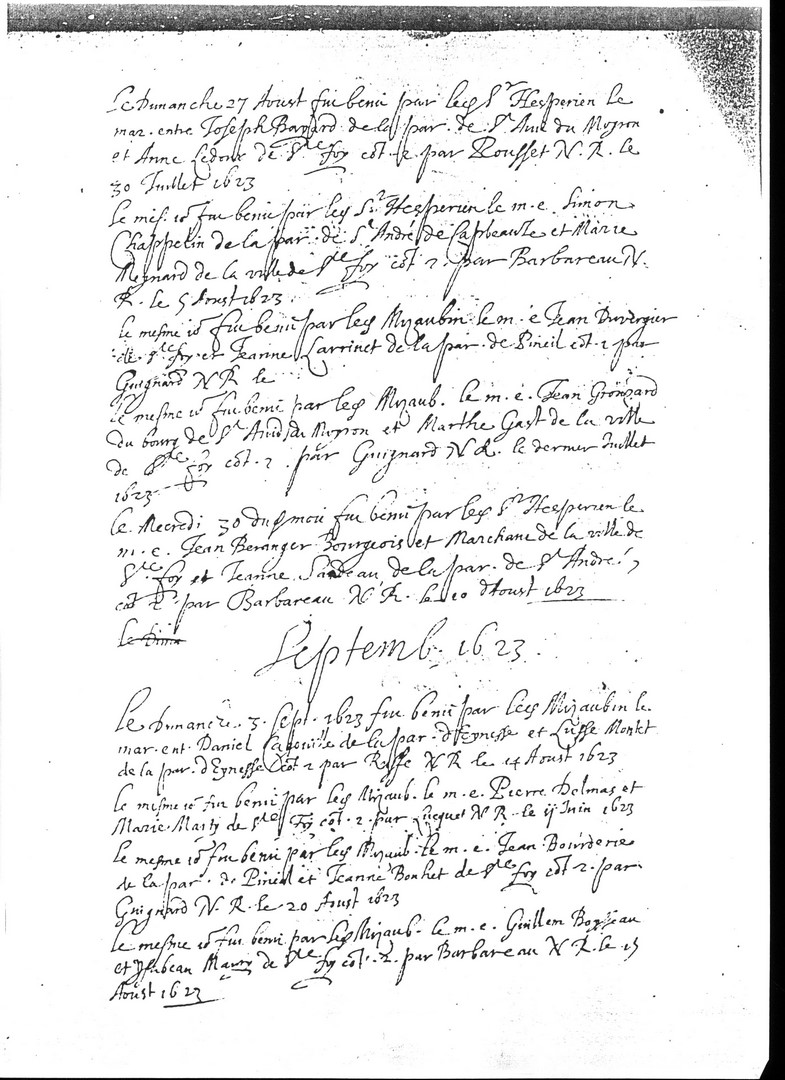 Le Dimanche 27 Aoust fut beni par led Sr Hesperien le
mar. entre Joseph Bayard de la par. de St Avit du Moyron
et Anne Ledoux de Ste foy côt. 2 par Rousset N. R. le
30 Juillet 1623
Le mes. jor fut beni par led Sr Hesperien le m. e. Simon
Chappelin de la par. de St André de Cabeauze et Marie
Meynard de la ville de Ste foy côt 2. par Barbareau N.
R. le 5 Aoust 1623.
le mesme jor fut beni par led Mizaubin le m. e Jean Duvergier
de Ste foy et Jeanne Larrinet de la par. de Pineil côt. 2 par
Guignard N R le
le mesme jor fut beni par led Mizaub. le m. e. Jean
du bourg de St Avid du Moyron et Marthe Gast de la ville
de Ste foy côt. 2. par Guignard N R. le dernier Juillet
1623
le Mecredi 30 dud mois fut beni par led Sr Hesperien le
m. e. Jean Beranger Bourgeois et Marchant de la ville de
Ste foy et Jeanne Sandeau de la par. de St André,
côt 2. par Barbareau N R. le 10 d'Aoust 1623
le Dima
Septemb. 1623.
Le Dimanche. 3. Sept. 1623 fut beni par led Mizaubin le
mar. ent. Daniel de la par. d'Eynesse et Lusse
de la par. d'Eynesse côt 2 par N R le 14 Aoust 1623
le mesme jor fut beni par led Mizaub. le m. e. Pierre Delmas et
Marie Marty de Ste Foy côt. 2. par Lucquet N R. le ij Juin 1623
le mesme jor fut beni par led Mizaub. le m. e. Jean Bourderie
de la par. de Pineil et Jeanne Bonhet de Ste foy côt 2. par
Guignard N. R. le 20 Aoust 1623
le mesme jor fut beni par led Mizaub. le m. e. Guillem Boysseau
et Ysabeau Maury de Ste foy côt. 2. par Barbareau N R. le 15
Aoust 1623